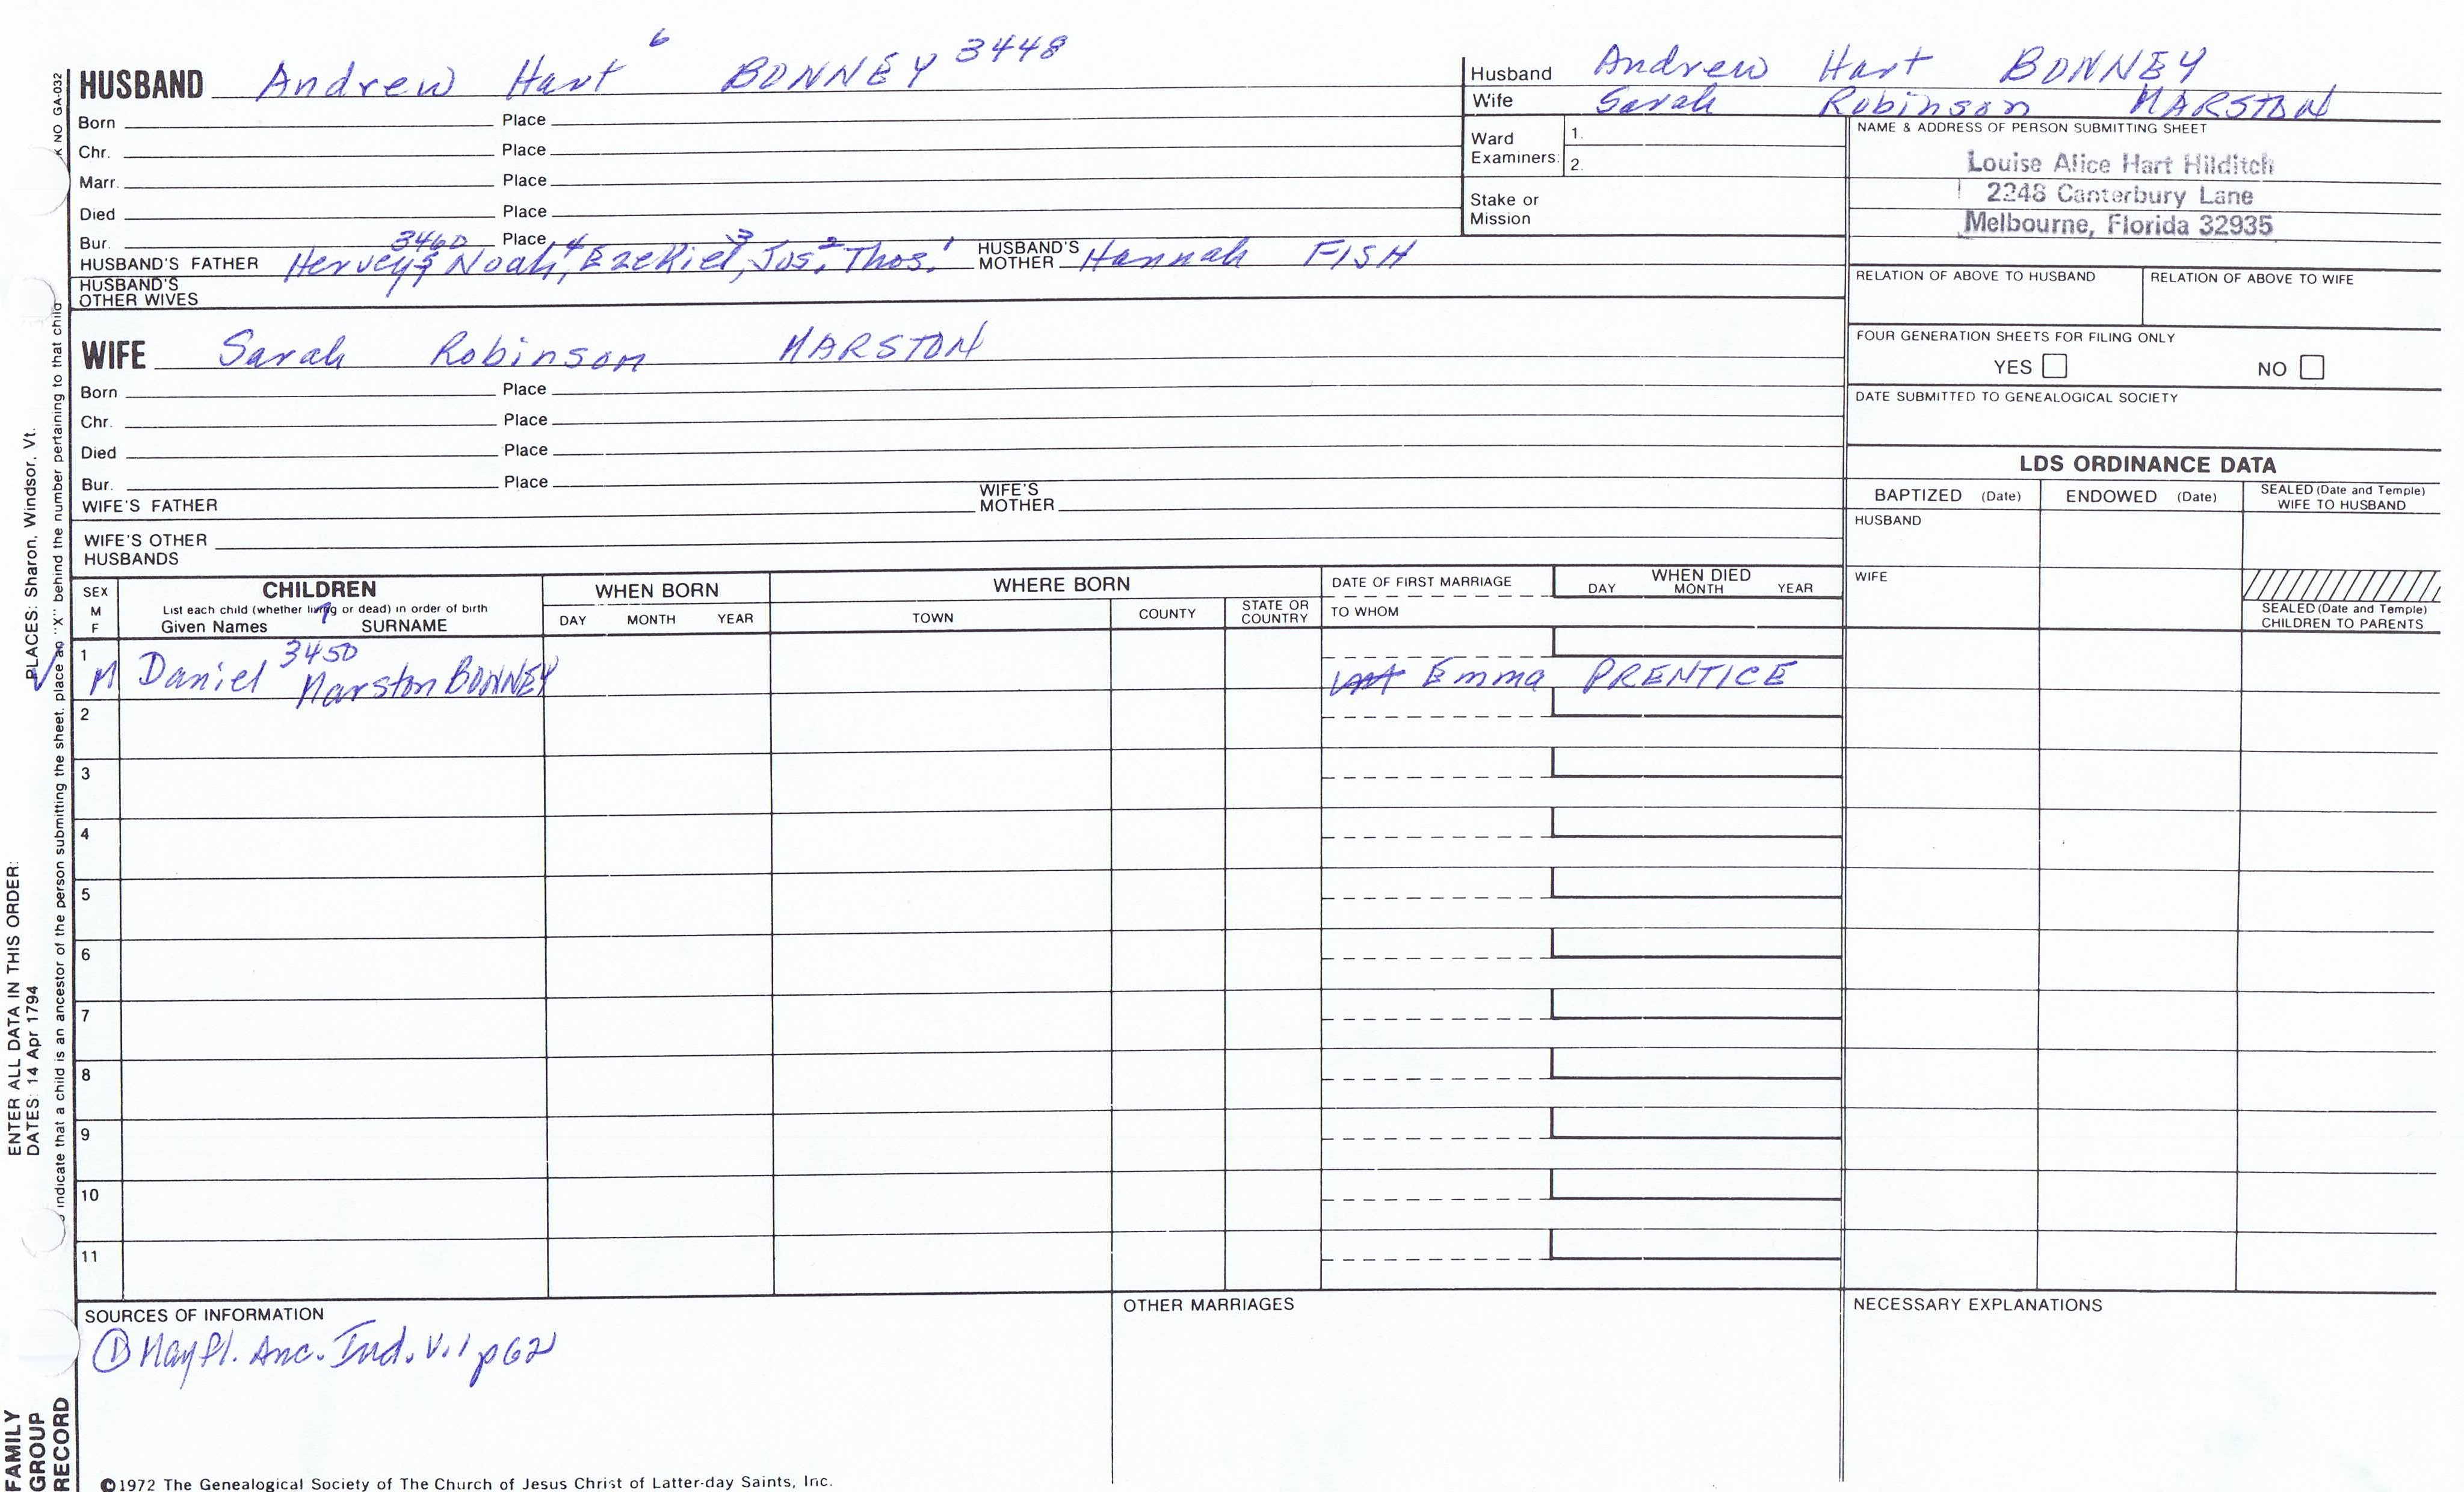 HUSBAND Andrew Hart 6 BONNEY 3448
Born Place
Chr. Place
Marr. Place
Died Place
Bur. Place
HUSBAND'S FATHER Hervey 5 3460 Noah, 4 Ezekiel, 3 Jos. 2 Thos. 1 HUSBAND'S MOTHER Hannah FISH
HUSBAND'S OTHER WIVES
WIFE Sarah Robinson MARSTON
Born Place
Chr. Place
Died Place
Bur. Place
WIFE'S FATHER WIFE'S MOTHER
WIFE'S OTHER HUSBANDS
Husband Andrew Hart BONNEY
Wife Sarah Robinson MARSTON
Ward Examiners: 1.
2.
Stake or Mission
NAME & ADDRESS OF PERSON SUBMITTING SHEET
Louise Alice Hart Hilditch
2248 Canterbury Lane
Melbourne, Florida 32935
RELATION OF ABOVE TO HUSBAND RELATION OF ABOVE TO WIFE
FOUR GENERATION SHEETS FOR FILING ONLY
YES NO
DATE SUBMITTED TO GENEALOGICAL SOCIETY
LDS ORDINANCE DATA
BAPTIZED (Date) ENDOWED (Date) SEALED (Date and Temple) WIFE TO HUSBAND
HUSBAND
WIFE
SEALED (Date and Temple) CHILDREN TO PARENTS
SEX M F
CHILDREN
List each child (whether living or dead) in order of birth
Given Names 7 SURNAME
WHEN BORN
DAY MONTH YEAR
WHERE BORN
TOWN COUNTY STATE OR COUNTRY
DATE OF FIRST MARRIAGE
TO WHOM
WHEN DIED
DAY MONTH YEAR
1 M Daniel 3450 Marston BONNEY Emma PRENTICE
2
3
4
5
6
7
8
9
10
11
SOURCES OF INFORMATION
① Mayfl. Anc. Ind. V.1 p62
OTHER MARRIAGES
NECESSARY EXPLANATIONS
©1972 The Genealogical Society of The Church of Jesus Christ of Latter-day Saints, Inc.
NO GA-032
indicate that a child is an ancestor of the person submitting the sheet, place an "X" behind the number pertaining to that child
ENTER ALL DATA IN THIS ORDER:
DATES: 14 Apr 1794 PLACES: Sharon, Windsor, Vt.
FAMILY GROUP RECORD